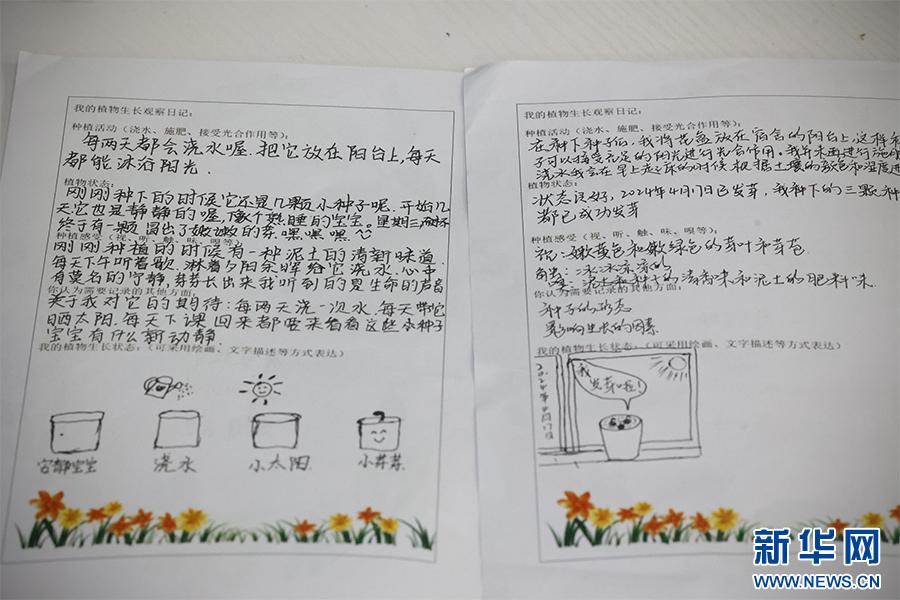 我的植物生长观察日记：
种植活动（浇水、施肥、接受光合作用等）：
每两天都会浇水喔.把它放在阳台上,每天
都能沐浴阳光.
植物状态：
刚刚种下的时候它还是几颗小种子呢.开始几
天它也是静静的喔,像个熟睡的宝宝.星期三
终于有一颗冒出了嫩嫩的芽嘿嘿嘿^^
种植感受（视、听、触、味、嗅等）：
刚刚种植的时候有一种泥土的清新味道.
每天下午听着歌.淋着夕阳余晖给它浇水.心中
有莫名的宁静,芽芽长出来我听到的是生命的声音
你认为需要记录的其他方面：
关于我对它的期待：每两天浇一次水.每天带它
日晒太阳.每天下课回来都要来看看这些小种子
宝宝有什么新动静
我的植物生长状态：（可采用绘画、文字描述等方式表达）
安静宝宝
浇水
小太阳.
小芽芽.
我的植物生长观察日记：
种植活动（浇水、施肥、接受光合作用等）：
在种下种子后,我将花盆放在宿舍的阳台上,这样
子可以接受充足的阳光进行光合作用。我并未进行施
浇水我会在早上起床的时候根据土壤的颜色和湿度进
植物状态：
状态良好,2024年4月17日已发芽，我种下的三颗种
都已成功发芽
种植感受（视、听、触、味、嗅等）：
视：嫩黄色和嫩绿色的芽叶和芽苞
冰冰凉凉的
清香味和泥土的肥料味.
你认为需要记录的其他方面：
种子的形态
影响生长的因素
我的植物生长状态：（可采用绘画、文字描述等方式表达）
2024年4月17日
我
发芽啦!
新华网
WWW.NEWS.CN